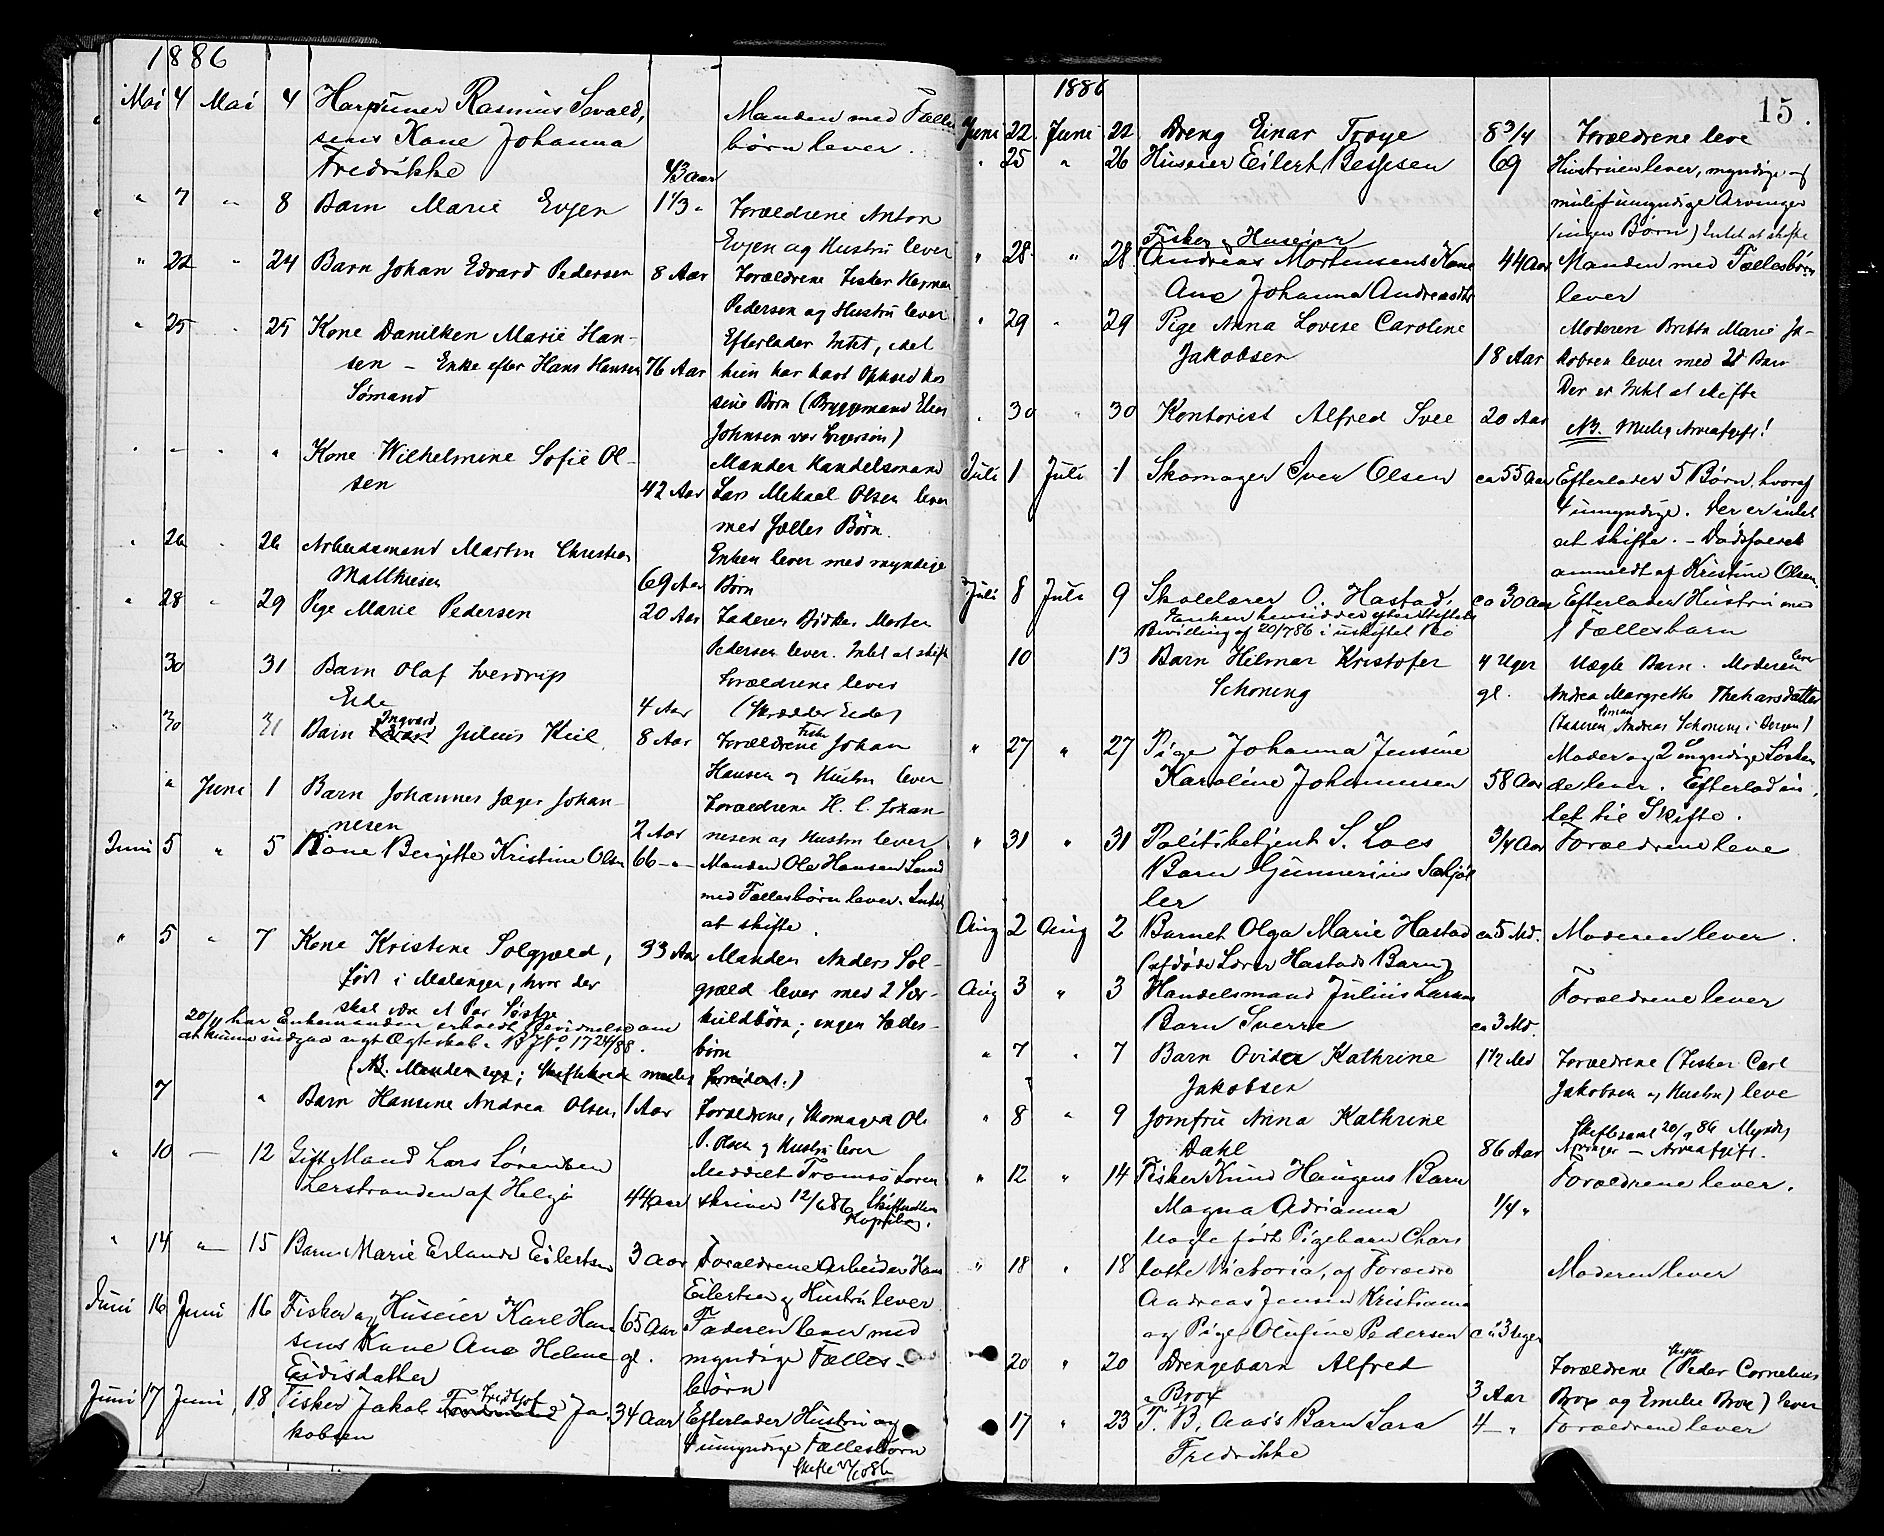 1886
Mai 4 Mai 4 Harpuner Rasmus Sevald,
sens Kone Johanna
Fredrikke 43 aar
Manden med Fælles
børn lever.
" 7 " 8 Barn Marie Evjen 1 1/3 "
Forældrene Anton
Evjen og Hustru lever
" 22 " 24 Barn Johan Edvard Pedersen 8 Aar
Forældrene Fisker
Pedersen og Hustru lever
" 25 " 25 Kone Danilken Marie Han-
sen - Enke efter Hans Hansen 76 Aar
Sømand
Efterlader Intet, idet
hun har havt Ophold hos
sine Børn (Bryggemand Elias
Johnsen var Svigersøn)
" - " " Kone Wilhelmine Sofie Ol-
sen 42 Aar
Manden Handelsmand
Lars Mekael Olsen lever
med fælles Børn.
" 26 " 26 Arbeidsmand Martin Christian
Matthiesen 69 Aar
Enken lever med myndige
Børn
" 28 " 29 Pige Marie Pedersen 20 Aar
Faderen Morten
Pedersen lever. Intet at skifte
30 31 Barn Olaf Sverdrup
Eide 4 Aar
Forældrene lever
(Skrædder Eide)
30 31 Barn Ingvard Julius Kiil 8 Aar
Forældrene Fisker Johan
Hansen og Hustru lever
" Juni 1 Barn Johannes Jæger Johan-
nesen 2 Aar
Forældrene H. C. Johan
nesen og Hustru lever
Juni 5 " 5 Kone Bergitte Kristine Olsen 66 - " -
Manden Ole Hansen Lund
med Fællesbørn lever. Intet
at skifte.
" 5 " 7 Kone Kristine Solgjæld, 33 Aar
født i Malangen, hvor der
skal være et Par Søskje
Manden Anders Sol-
gjæld lever med 2 Sær-
kuldbørn; ingen Fælles-
børn
20/11 har Enkemanden erholdt Bevidnelse om
at kunne indgaa nyt Ægteskab. B Jfo. 1724/88.
(NB. Manden syg; Skiftekrede )
7 " Barn Hansine Andrea Olsen 1 Aar
Forældrene, Skomager Ole
P. Olsen og Hustru lever
" 10 - 12 Gift Mand Lars Sørensen
Lerstranden af Helgø 44 aar
Meddelt Tromsø Soren
skriver 12/6 86
" 14 " 15 Barn Marie Erlande Eilertsen 3 Aar
Forældrene Arbeider Hans
Eilertsen og Hustru lever
Juni 16 Juni 16 Fisker og Huseier Karl Han
sens Kone Ane Helene
Eidisdatter 65 Aar gl.
Faderen lever med
myndige Fælles-
børn
Juni 17 Juni 18 Fisker Jakob Fridtjof Ja
kobsen 34 Aar
Efterlader Hustru og
4 umyndige Fællesbørn
1886
15.
Juni 22 Juni 22 Dreng Einar Troye 8 3/4 Forældrene leve
" 25 " 26 Huseier Eilert Bessesen 69
Hustruen lever, myndige og
mulig umyndige Arvinger
(ingen Børn) Intet at skifte
" 28 " 28 Fisker og Huseier
Andreas Mortensens Kone 44 Aar
Ane Johanna Andreasdtr
Manden med Fællesbørn
lever
" 29 " 29 Pige Anna Lovise Caroline
Jakobsen 18 Aar
Moderen Britta Marie Ja-
kobsen lever med 2 Barn
Der er Intet at skifte
" 30 " 30 Kontorist Alfred Svee 20 Aar
NB. Mulig Arveafgift!
Juli 1 Juli 1 Skomager Iver Olsen ca 55 Aar
Efterlader 5 Børn, hvoraf
4 umyndige. Der er intet
at skifte. - Dødsfaldet
anmeldt af Kristine Olsen.
Juli 8 Juli 9 Skolelærer O. Hastad, ca 30 Aar
Enken hensidder efter Skifterets
Bevilling af 20/7 86 i uskiftet Bo
Efterlader Hustru med
1 Fællesbarn
10 13 Barn Hilmar Kristofer 4 Uger
Schøning gl.
Uægte Barn. Moderen lever
Andrea Margrethe
(Faderen Andreas Schøning i )
" 27 " 27 Pige Johanna Jensine
Karoline Johannesen 58 Aar
Moder og 2 myndige Søsken
de lever. Efterlod in,
tet til Skifte.
" 31 " 31 Politibetjent S. Loes 3/4 Aar
Barn Gunnerius Schjøl
ler
Forældrene leve
Aug 2 Aug 2 Barnet Olga Marie Hastad ca 5 Md. Moderen lever.
(afdøde Lærer Hastads Barn)
Aug 3 " 3 Handelsmand Julius Larsens
Barn Sverre ca 3 Md.
Forældrene lever
" 7 " 7 Barn Ovidia Kathrine 1 1/2 Md
Jakobsen
Forældrene (Fisker Carl
Jakobsen og Hustru) leve
" 8 " 9 Jomfru Anna Kathrine
Dahl 86 Aar
Skiftesaml 20/9 86 Myndig
Arvinger - Arveafgift.
" 12 " 14 Fisker Knud Haugens Barn
Magna Adrianna 1/4 "
Forældrene lever.
" 18 " 18 Uægte født Pigebarn Char
lotte Victoria, af Forældre
Andreas Jensen Kristiania
og Pige Olufine Pedersen ca 3 Uger
Moderen lever
20 " 20 Drengebarn Alfred
Brox 3 Aar
Forældrene (Peder Cornelius
Brox og Emilie Brox) lever
17 " 23 T. B. Aas's Barn Sara 4 - "
Fredrikke
Forældrene lever